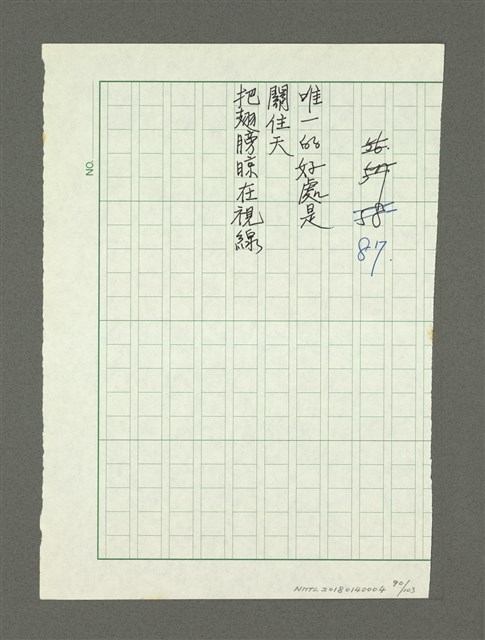 56.
57
58
87.
唯一的好處是
關住天
把翅膀晾在視線
NO.
NMTL20180140004 90/103